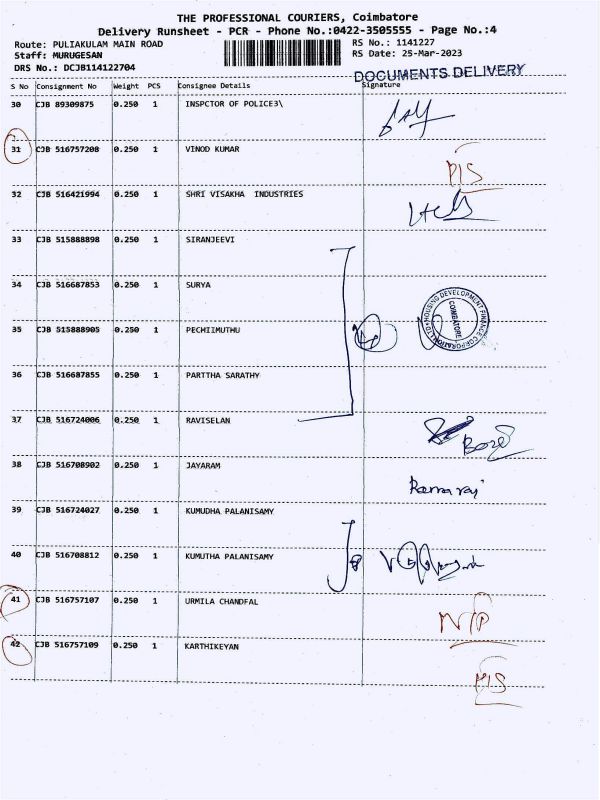 THE PROFESSIONAL COURIERS, Coimbatore
Delivery Runsheet - PCR - Phone No.:0422-3505555 - Page No.:4
Route: PULIAKULAM MAIN ROAD RS No.: 1141227
Staff: MURUGESAN RS Date: 25-Mar-2023
DRS No.: DCJB114122704
DOCUMENTS DELIVERY
S No Consignment No Weight PCS Consignee Details Signature
30 CJB 89309875 0.250 1 INSPCTOR OF POLICE3\
31 CJB 516757208 0.250 1 VINOD KUMAR
32 CJB 516421994 0.250 1 SHRI VISAKHA INDUSTRIES
33 CJB 515888898 0.250 1 SIRANJEEVI
34 CJB 516687853 0.250 1 SURYA
HOUSING DEVELOPMENT FINANCE CORPORATION LTD
COIMBATORE
35 CJB 515888905 0.250 1 PECHIIMUTHU
36 CJB 516687855 0.250 1 PARTTHA SARATHY
37 CJB 516724006 0.250 1 RAVISELAN
38 CJB 516708902 0.250 1 JAYARAM
Ramaraj
39 CJB 516724027 0.250 1 KUMUDHA PALANISAMY
40 CJB 516708812 0.250 1 KUMUTHA PALANISAMY
41 CJB 516757107 0.250 1 URMILA CHANDFAL
42 CJB 516757109 0.250 1 KARTHIKEYAN